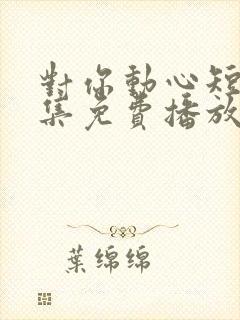 對你動心短
集免費播放
葉綿綿